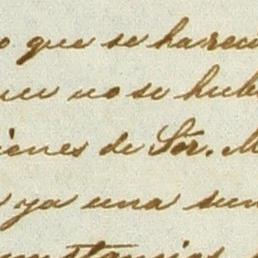 o que se ha reco
uen no se hub
iones de Ser. M
ya una sum
unstancias